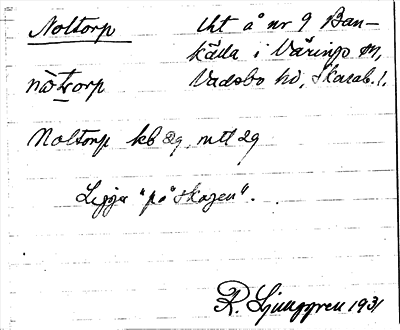 Noltorp
lht å nr 9 Ban-
källa i Värings sn,
nòtorp
Vadsbo hd, Skarab. l.
Noltorp kb 29, mtl 29
Ligger "på skogen".
R. Ljunggren 1931